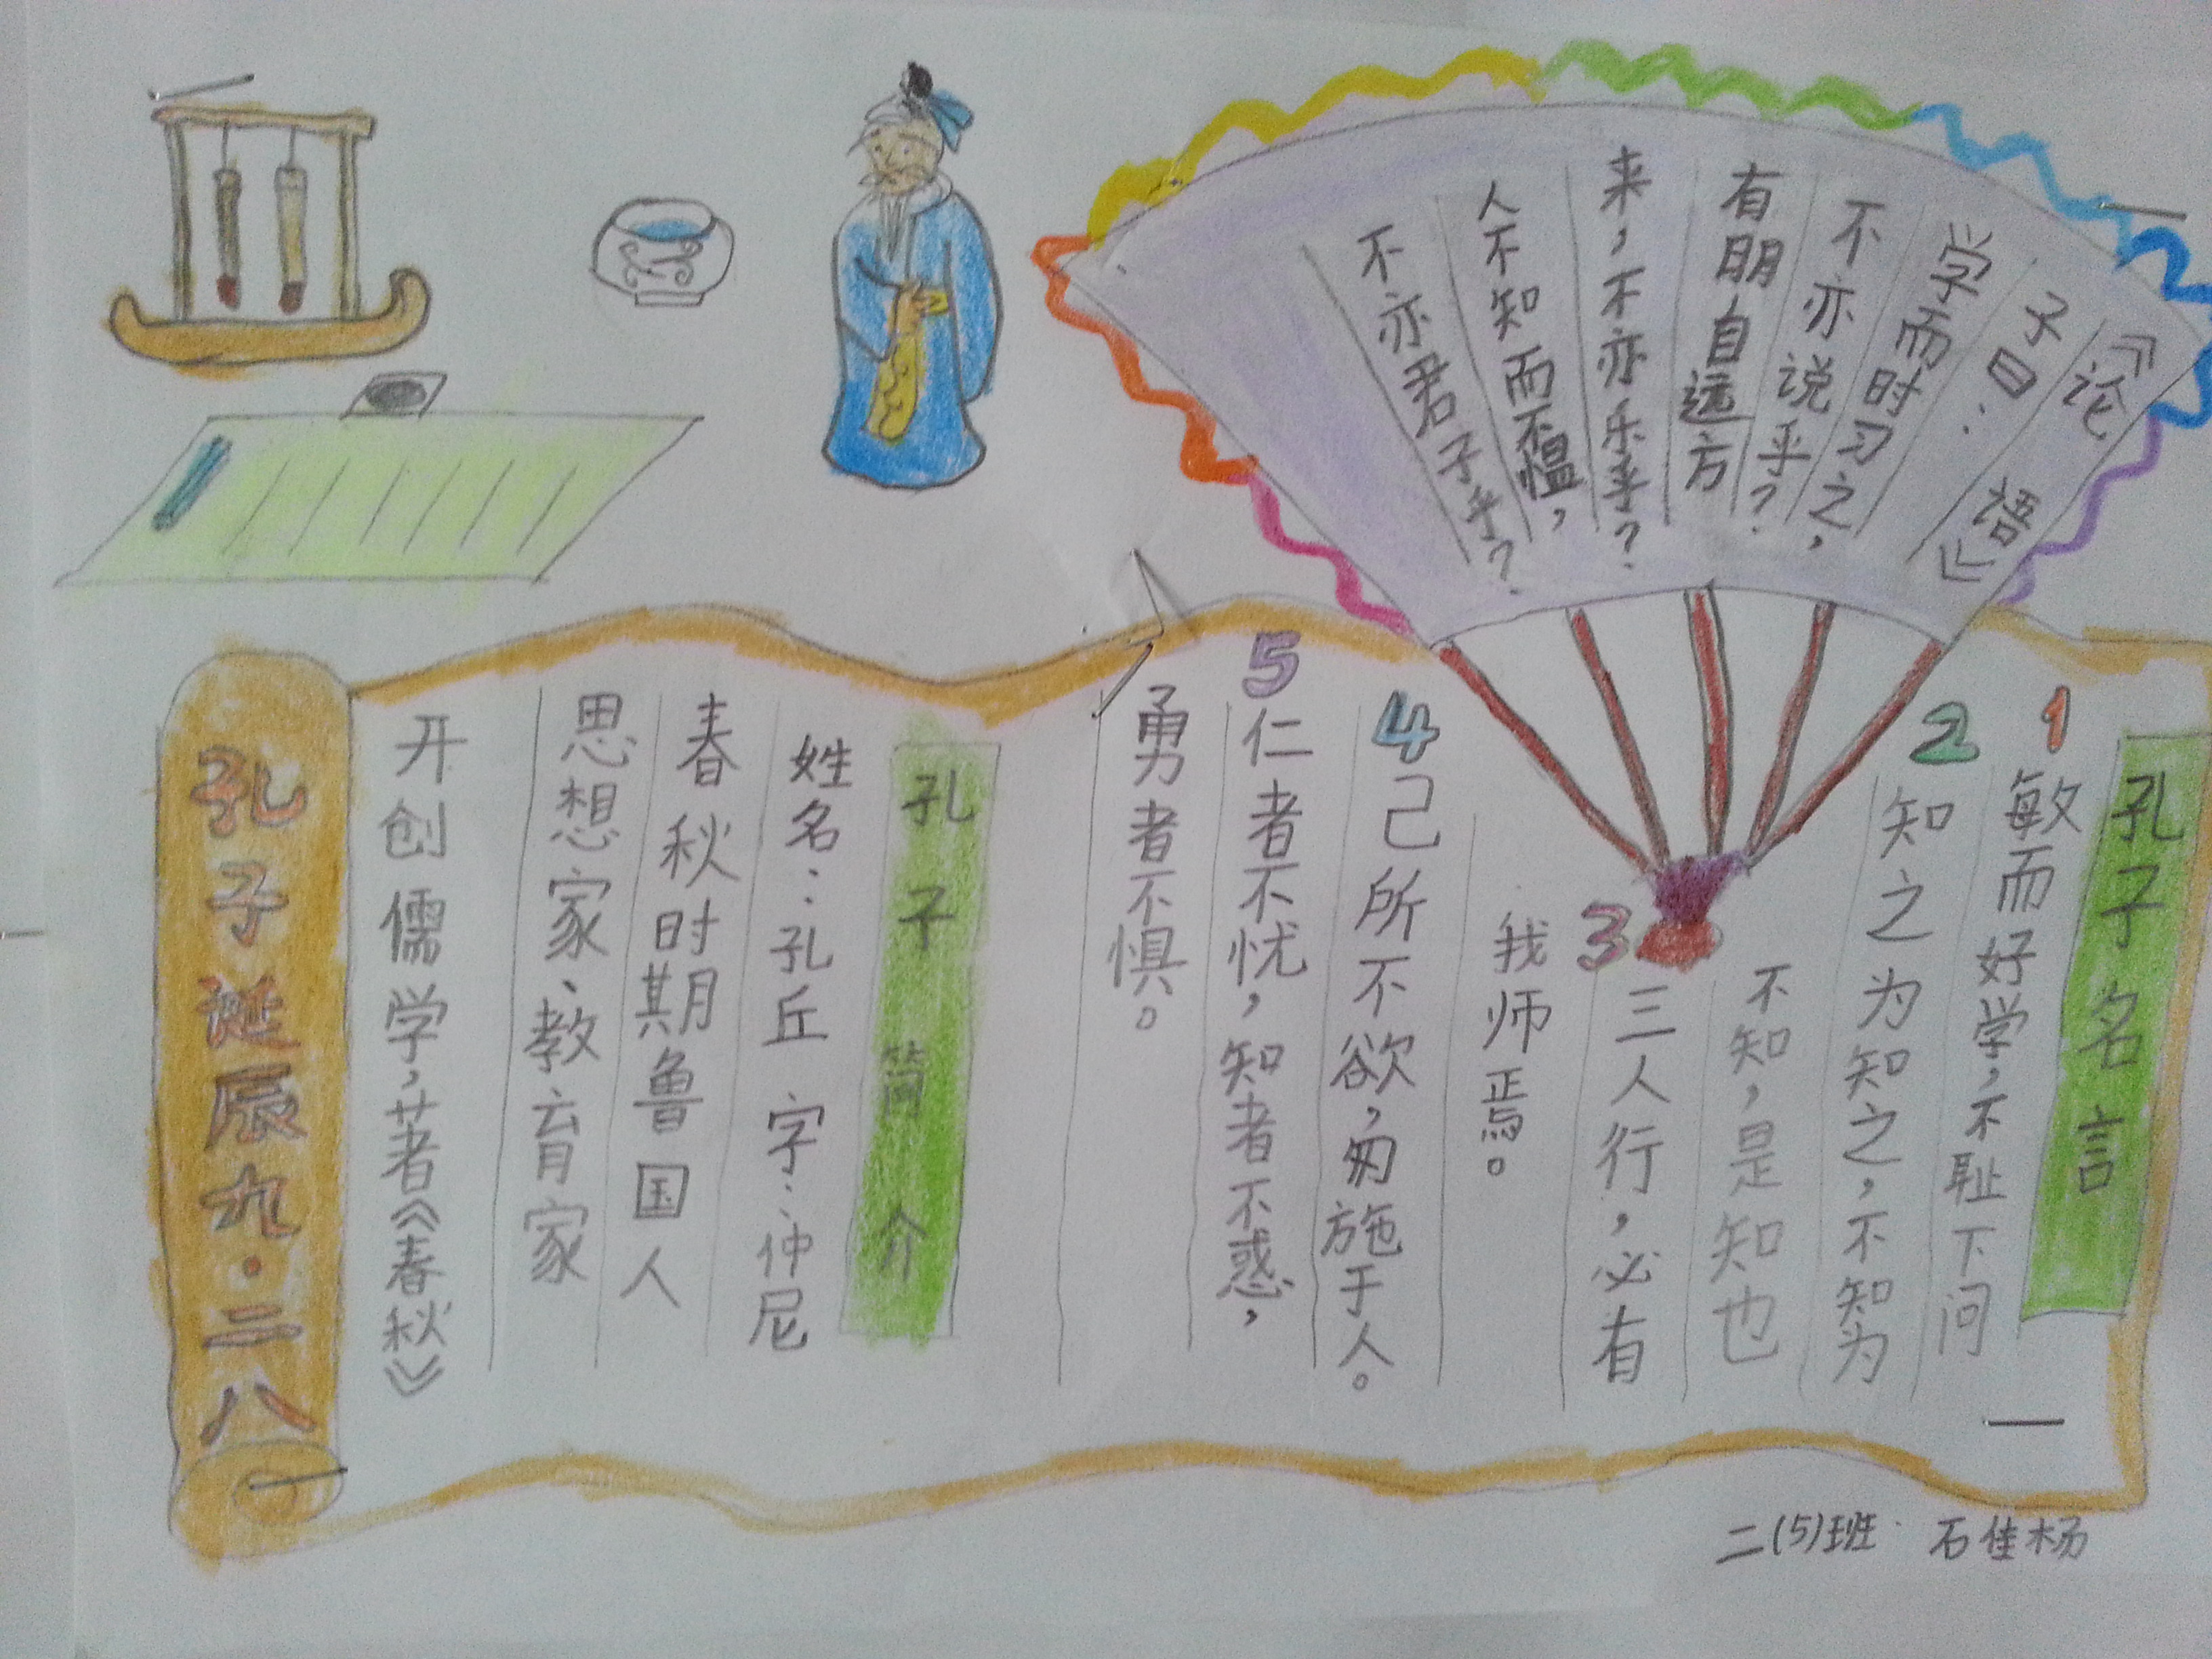 《论语》
子曰:
学而时习之,
不亦说乎?
有朋自远方
来,不亦乐乎?
人不知而不愠,
不亦君子乎?
孔子名言
1敏而好学,不耻下问
2知之为知之,不知为
不知,是知也
3三人行,必有
我师焉。
4己所不欲,勿施于人。
5仁者不忧,知者不惑,
勇者不惧。
孔子简介
姓名:孔丘 字:仲尼
春秋时期鲁国人
思想家、教育家
开创儒学,著《春秋》
孔子诞辰九·二八
二(5)班 石佳杨